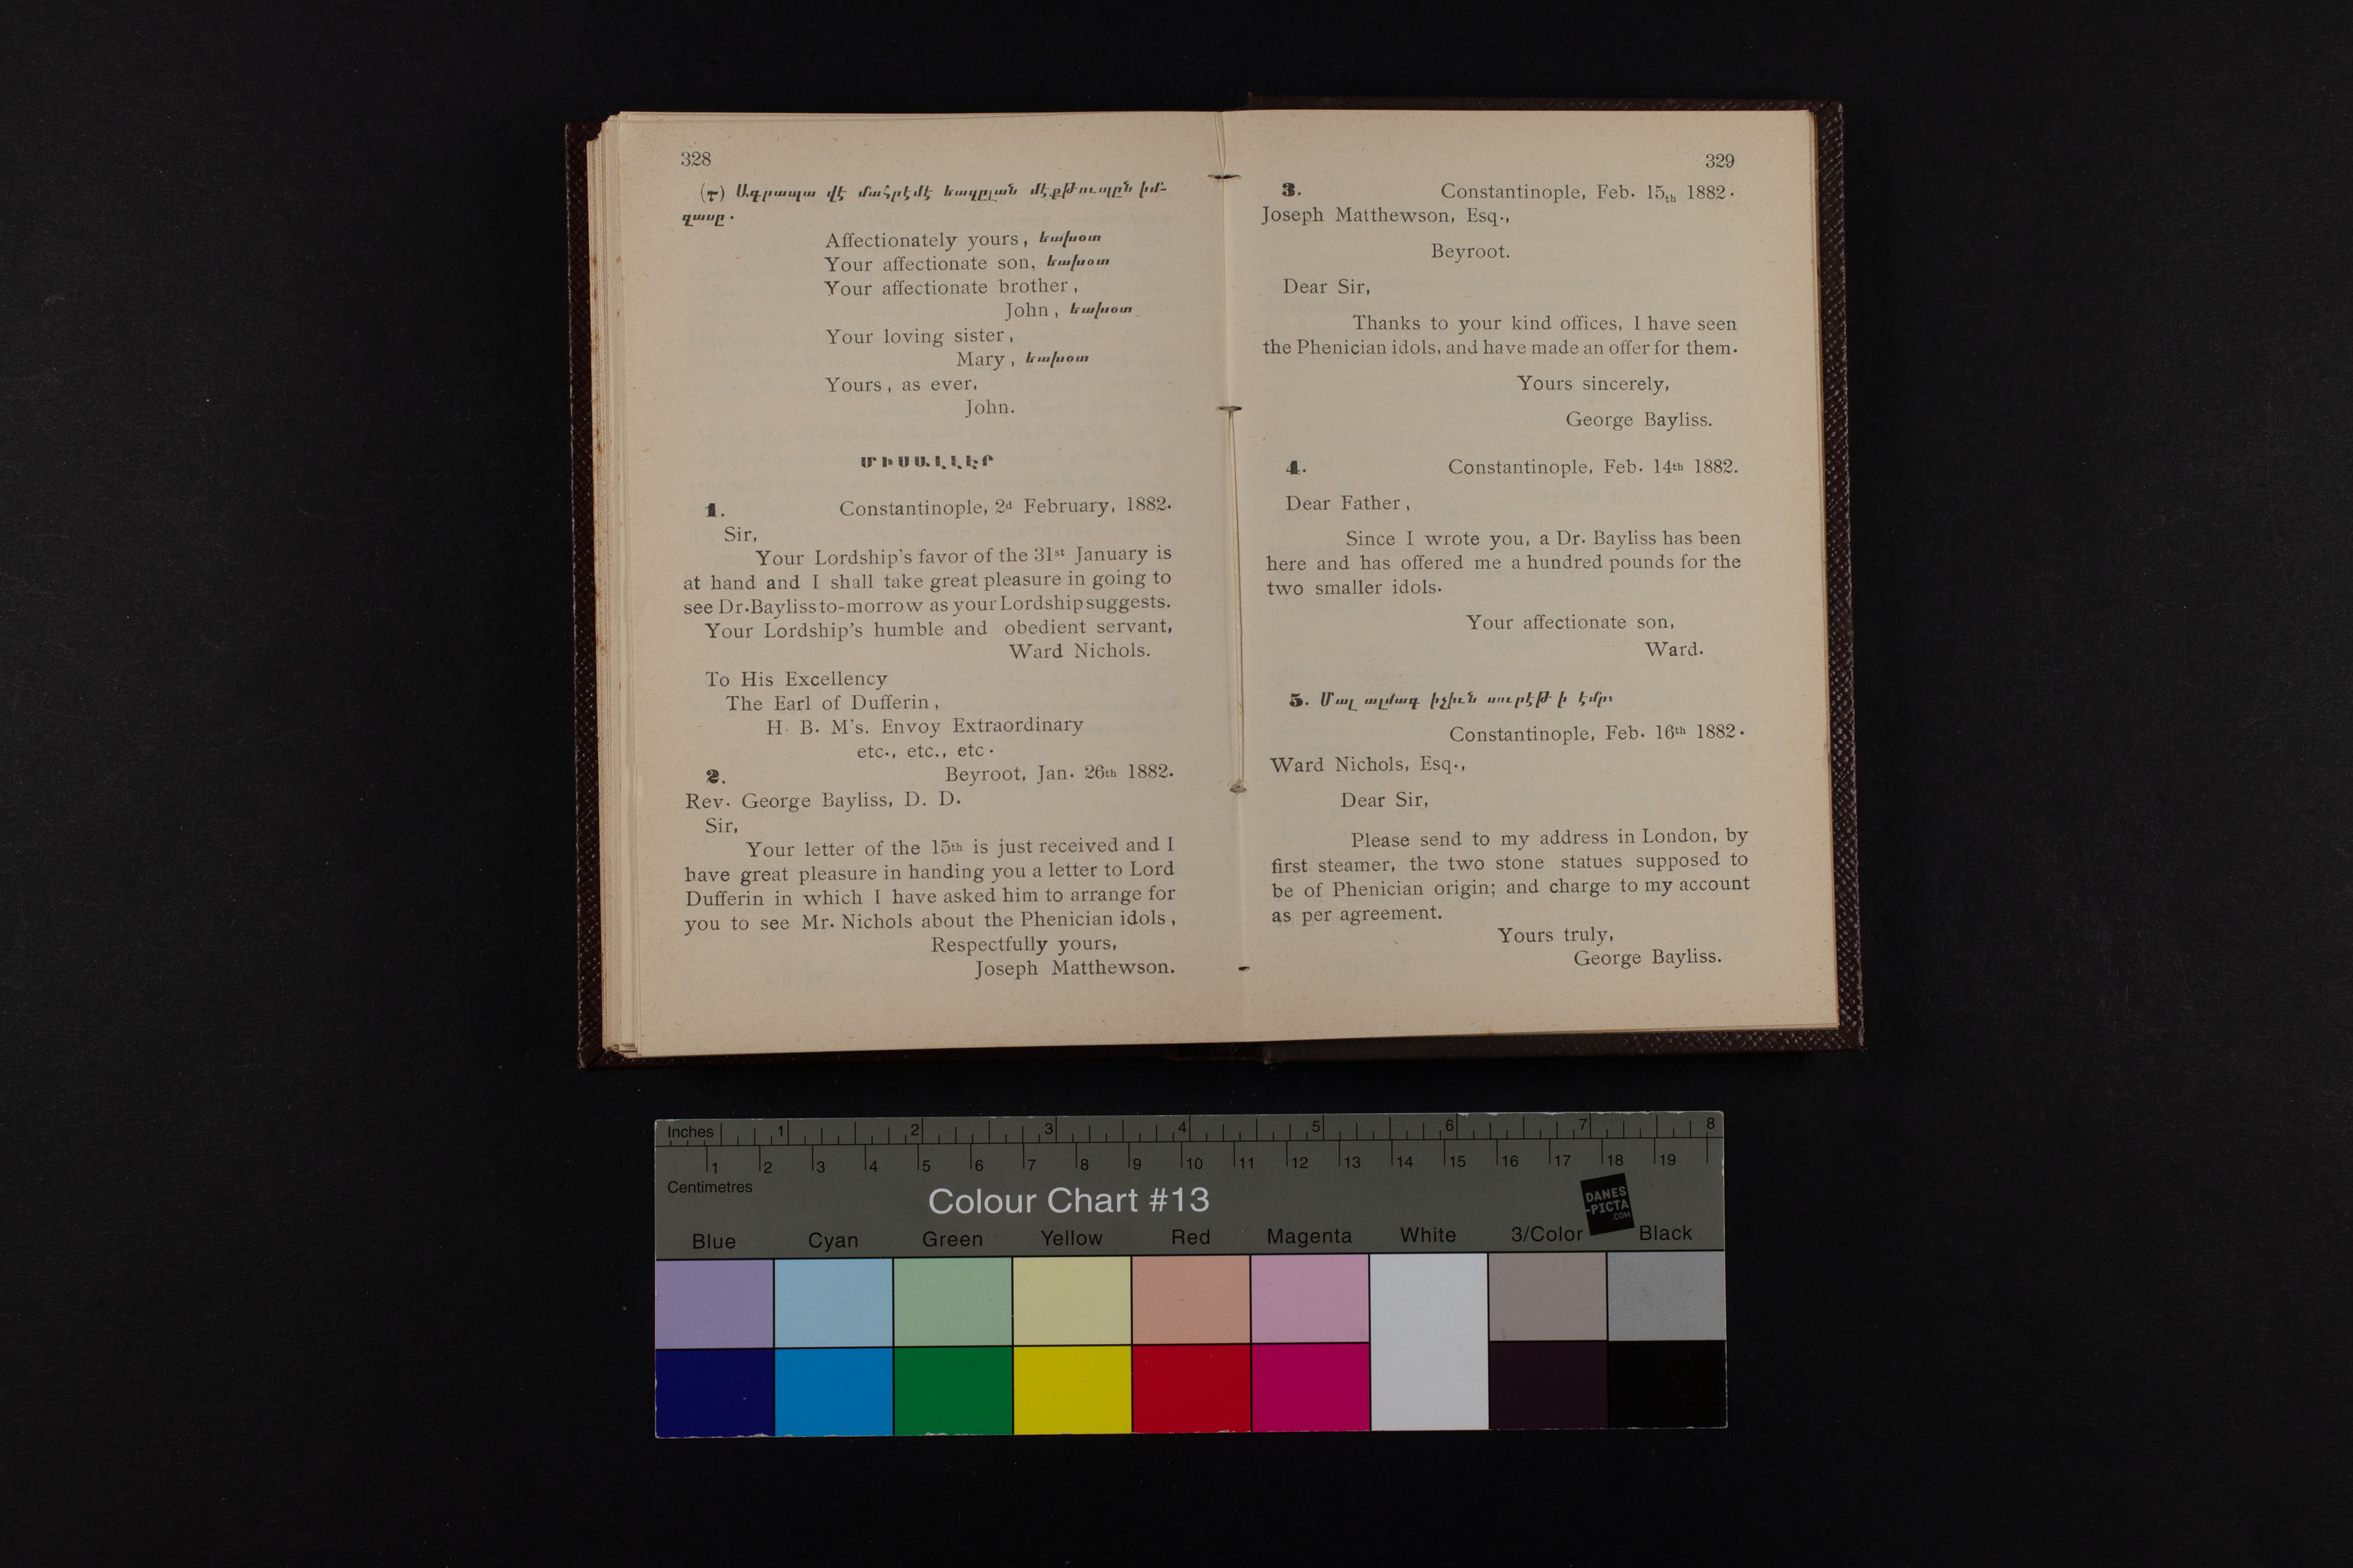 328
(դ) Ազրապա վէ մահրէմէ եազըլան մէքթուպըն իմ-
զասը.
Affectionately yours, եախօտ
Your affectionate son, եախօտ
Your affectionate brother,
John, եախօտ
Your loving sister,
Mary, եախօտ
Yours, as ever,
John.
ՄԻՍԱԼԼԷՐ
1. Constantinople, 2d February, 1882.
Sir,
Your Lordship's favor of the 31st January is
at hand and I shall take great pleasure in going to
see Dr. Bayliss to-morrow as your Lordship suggests.
Your Lordship's humble and obedient servant,
Ward Nichols.
To His Excellency
The Earl of Dufferin,
H. B. M's. Envoy Extraordinary
etc., etc., etc.
2. Beyroot, Jan. 26th 1882.
Rev. George Bayliss, D. D.
Sir,
Your letter of the 15th is just received and I
have great pleasure in handing you a letter to Lord
Dufferin in which I have asked him to arrange for
you to see Mr. Nichols about the Phenician idols,
Respectfully yours,
Joseph Matthewson.
329
3. Constantinople, Feb. 15th 1882.
Joseph Matthewson, Esq.,
Beyroot.
Dear Sir,
Thanks to your kind offices, I have seen
the Phenician idols, and have made an offer for them.
Yours sincerely,
George Bayliss.
4. Constantinople, Feb. 14th 1882.
Dear Father,
Since I wrote you, a Dr. Bayliss has been
here and has offered me a hundred pounds for the
two smaller idols.
Your affectionate son,
Ward.
5. Մալ ալմագ իչիւն սուրէթ ի էմր։
Constantinople, Feb. 16th 1882.
Ward Nichols, Esq.,
Dear Sir,
Please send to my address in London, by
first steamer, the two stone statues supposed to
be of Phenician origin; and charge to my account
as per agreement.
Yours truly,
George Bayliss.
Inches 1 2 3 4 5 6 7 8
1 2 3 4 5 6 7 8 9 10 11 12 13 14 15 16 17 18 19
Centimetres
Colour Chart #13
DANES
-PICTA
.COM
Blue Cyan Green Yellow Red Magenta White 3/Color Black